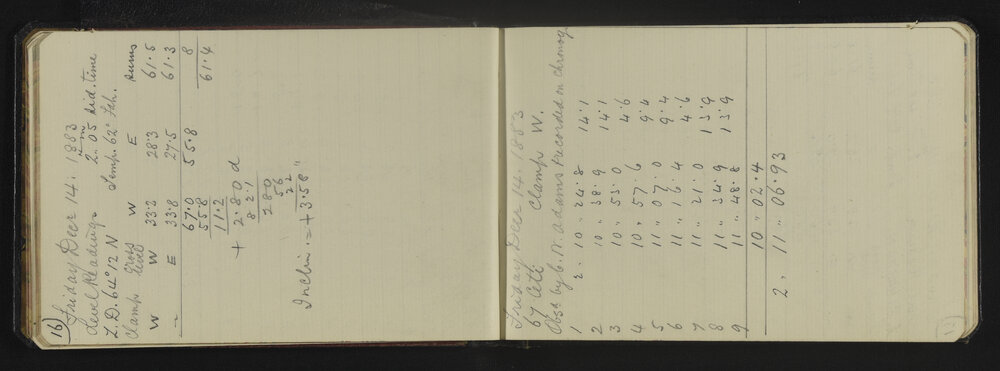 16)
Friday Decr 14. 1883
Level Readings 2h 05m Sid. time
Z.D. 64° 12 N Temp. 62° Fah.
Clamp Cross level W E Sums
W W 33.2 28.3 61.5
" E 33.8 27.5 61.3
67.0 55.8 8
55.8 61.4
11.2
+ 2.80 d
8 2.1
280
56
22
Inclin. = + 3.58"
Friday Decr 14. 1883
67 Ceti Clamp W.
Obsd by C. N. Adams recorded on Chronog
1 2 " 10 " 24.8 14.1
2 10 " 38.9 14.1
3 10 " 53.0 4.6
4 10 " 57.6 9.4
5 11 " 07.0 9.4
6 11 " 16.4 4.6
7 11 " 21.0 13.9
8 11 " 34.9 13.9
9 11 " 48.8
10 " 02.4
2 " 11 " 06.93